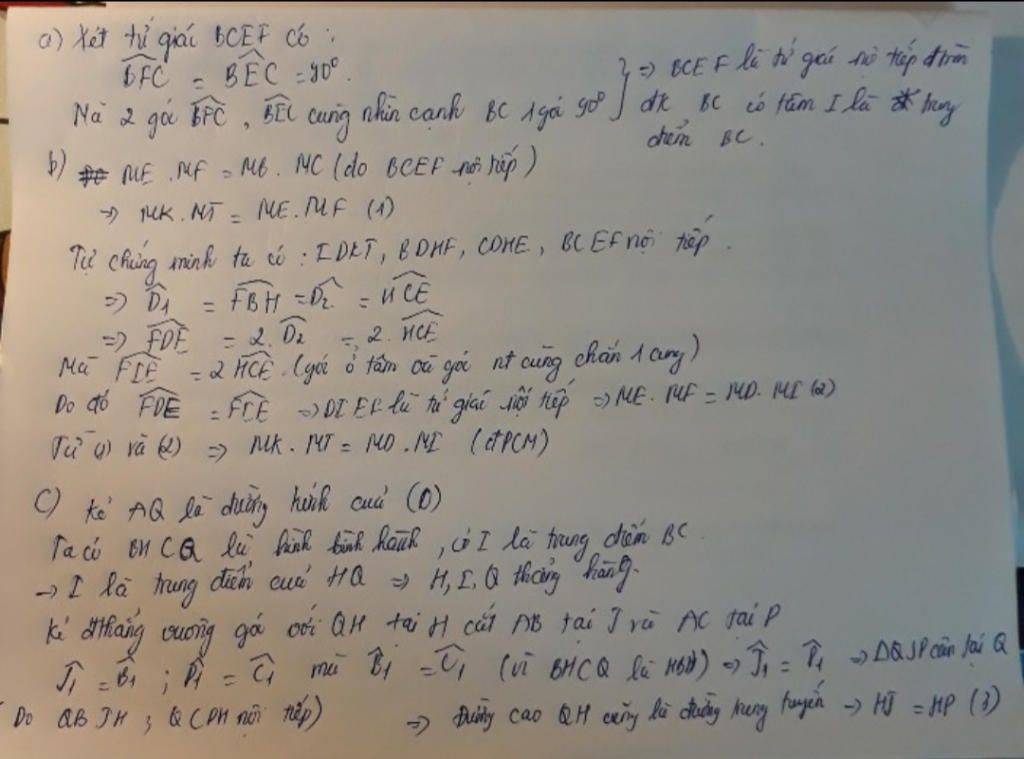 a) Xét tứ giác BCEF có :
BFC = BEC = 90°.
Mà 2 góc BFC, BEC cùng nhìn cạnh BC 1 góc 90° } => BCEF là tứ giác nội tiếp đtròn
đk BC có tâm I là trung
điểm BC.
b) ME.MF = MB.MC (do BCEF nội tiếp)
=> MK.MT = ME.MF (1)
Tự chứng minh ta có : IDKT, BDHF, CDHE, BCEF nội tiếp.
=> D1 = FBH = D2 = HCE
=> FDE = 2.D2 = 2.HCE
Mà FIE = 2 HCE (góc ở tâm và góc nt cùng chắn 1 cung)
Do đó FDE = FIE => DIEF là tứ giác nội tiếp => ME.MF = MD.MI (2)
Từ (1) và (2) => MK.MT = MD.MI (đPCM)
C) Kẻ AQ là đường kính cuả (O)
Ta có BHCQ là hình bình hành, có I là trung điểm BC
-> I là trung điểm cuả HQ => H, I, Q thẳng hàng.
Kẻ đthẳng vuông góc với QH tại H cắt AB tại J và AC tại P
J1 = B1 ; P1 = C1 mà B1 = C1 (vì BHCQ là HBH) => J1 = P1 -> ΔQJP cân tại Q
(Do QBJH ; QCPH nội tiếp) => Đường cao QH cũng là đường trung tuyến -> HJ = HP (3)